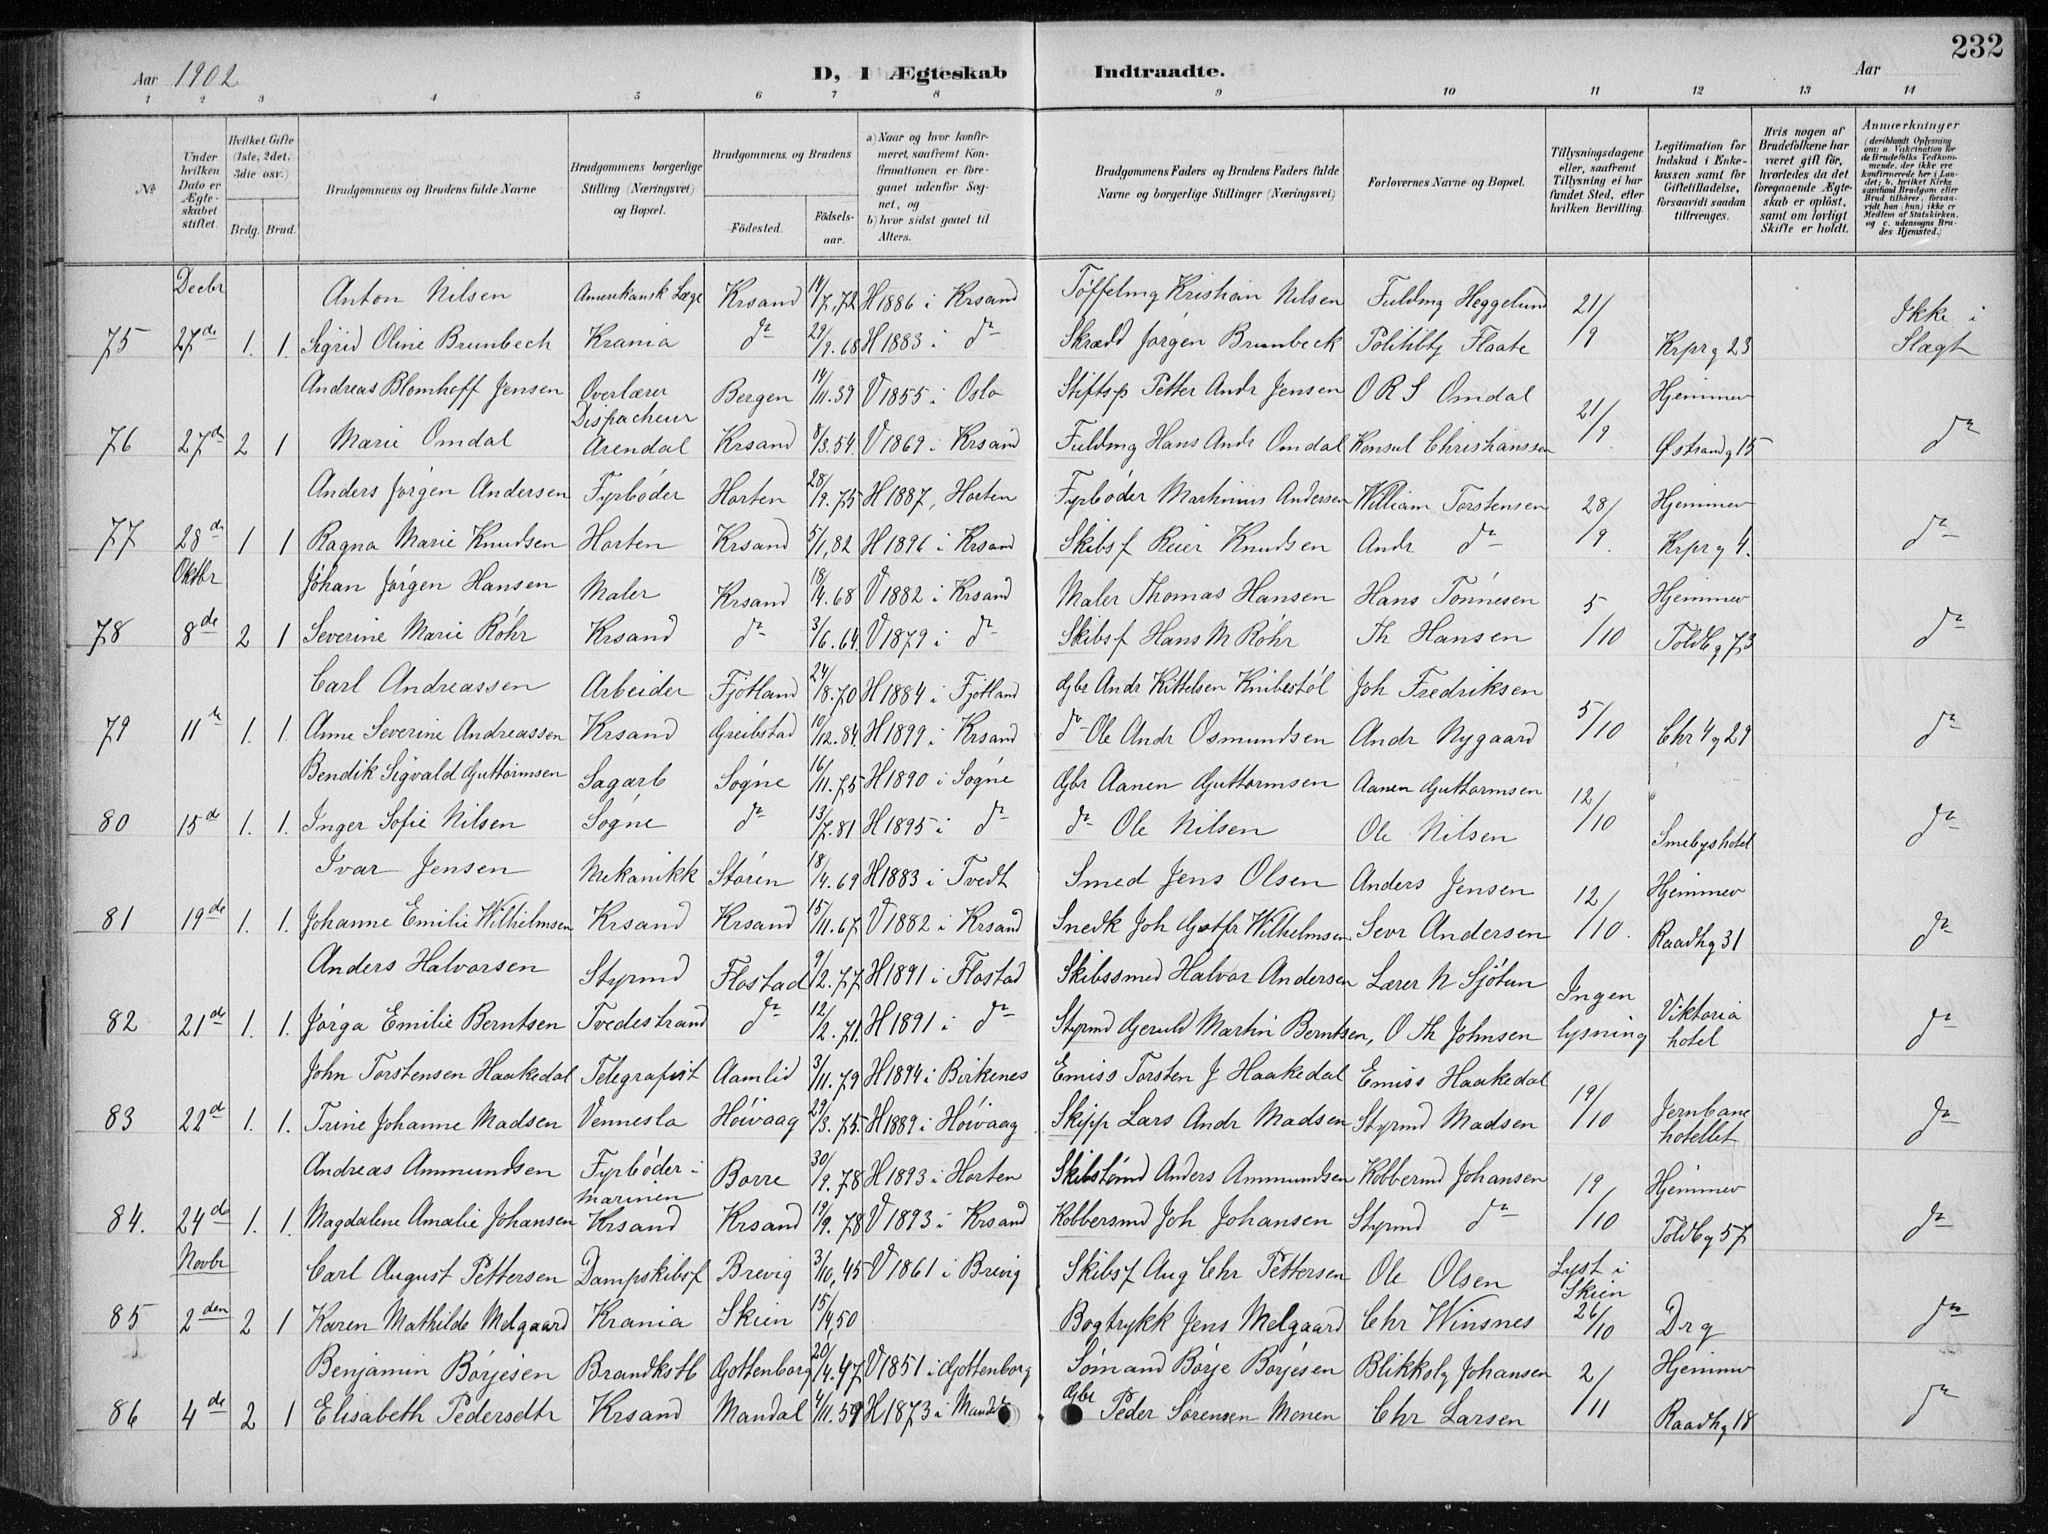 232
Aar 1902 D, I Ægteskab Indtraadte. Aar
1 2 3 4 5 6 7 8 9 10 11 12 13 14
№
Under hvilken Dato er Ægteskabet stiftet.
Hvilket Gifte (1ste, 2det, 3die osv.)
Brdg. Brud.
Brudgommens og Brudens fulde Navne
Brudgommens borgerlige Stilling (Næringsvei) og Bopæl.
Brudgommens og Brudens
Födested. Födselsaar.
a) Naar og hvor konfirmeret, saafremt Konfirmationen er foregaaet udenför Sognet, og
b) hvor sidst gaaet til Alters.
Brudgommens Faders og Brudens Faders fulde Navne og borgerlige Stillinger (Næringsvei)
Forlovernes Navne og Bopæl.
Tillysningsdagene eller, saafremt Tillysning ei har fundet Sted, efter hvilken Bevilling.
Legitimation for Indskud i Enkekassen samt for Giftetilladelse, forsaavidt saadan tiltrænges.
Hvis nogen af Brudefolkene har været gift för, hvorledes da det foregaaende Ægteskab er oplöst, samt om lovligt Skifte er holdt.
Anmærkninger
(deriblandt Oplysning om: a. Vaccination for de Brudefolks Vedkommende, der ikke ere konfirmerede her i Landet; b. hvilket Kirkesamfund Brudgom eller Brud tilhörer, forsaavidt han (hun) ikke er Medlem af Statskirken, og c. udensogns Brudes Hjemsted.)
Decbr Anton Nilsen Amerikansk Læge Krsand 14/7,72 H 1886 i Krsand Töffelmg Kristian Nilsen Fuldmg Heggelund 21/9 Ikke i
75 27de 1. 1. Sigrid Oline Brunbech Krania do 29/9.68 H 1883 i do Skrædd Jørgen Brunbeck Politibtj Flaate Krprg 23 Slægt
Andreas Blomhoff Jensen Overlærer Bergen 14/11.39 V 1855 i Oslo Stiftsp Petter Andr Jensen O R S Omdal 21/9 Hjemmev
76 27de 2 1 Marie Omdal Dispacheur Arendal Krsand 8/3.54. V 1869 i Krsand Fuldmg Hans Andr Omdal Konsul Christianssen Østrandg 15 do
Anders Jørgen Andersen Fyrböder Horten 28/9.75 H 1887, Horten Fyrböder Martinius Andersen William Torstensen 28/9. Hjemmev
77 28de 1 1 Ragna Marie Knudsen Horten Krsand 5/1,82 H 1896 i Krsand Skibsf Reier Knudsen Andr do Krprg 4. do
Oktbr Johan Jørgen Hansen Maler Krsand 18/4.68 V 1882 i Krsand Maler Thomas Hansen Hans Tönnesen 5/10 Hjemmev
78 8de 2 1 Severine Marie Röhr Krsand do 3/6.64. V 1879 i do Skibsf Hans M Röhr Th Hansen Toldbg 73 do
Carl Andreassen Arbeider Fjotland 24/8.70 H 1884 i Fjotland Gbr Andr Kittelsen Knibestöl Joh Fredriksen 5/10
79 11te 1. 1. Anne Severine Andreassen Krsand Greibstad 10/12.84. H 1899 i Krsand do Ole Andr Osmundsen Andr Nygaard Chr 4 g 29 do
Bendik Sigvald Guttormsen Sagarb Søgne 16/11.75 H 1890 i Søgne Gbr Aanen Guttormsen Aanen Guttormsen 12/10
80 15de 1. 1. Inger Sofie Nilsen Søgne do 13/7.81 H 1895 i do do Ole Nilsen Ole Nilsen Smebys hotel do
Ivar Jensen Mekanikk Stören 18/4.69 H 1883 i Tvedt Smed Jens Olsen Anders Jensen 12/10. Hjemmev
81 19de 1. 1. Johanne Emilie Wilhelmsen Krsand Krsand 15/11.67 V 1882 i Krsand Snedk Joh Gotfr Wilhelmsen Sevr Andersen Raadhg 31 do
Anders Halvorsen Styrmd Flostad 9/2.77 H 1891 i Flostad Skibssmed Halvor Andersen Lærer N Sjötun Ingen Viktoria
82 21de 1. 1. Jørga Emilie Berntsen Tvedestrand do 12/2.71. H 1891 i do Styrmd Gjeruld Martin Berntsen, O Th Johnsen lysning hotel do
John Torstensen Haakedal Telegrafist Aamlid 3/11.79 H 1894 i Birkenes Emiss Torsten J Haakedal Emiss Haakedal 19/10
83 22de 1. 1. Trine Johanne Madsen Vennesla Høivaag 29/3.75. H 1889 i Høivaag Skipp Lars Andr Madsen Styrmd Madsen Jernbane hotellet do
Andreas Ammundsen Fyrböder i marinen Borre 30/9.78 H 1893 i Horten Skibstömd Anders Ammundsen Kobbermd Johansen 19/10 Hjemmev
84. 24de 1. 1. Magdalene Amalie Johansen Krsand Krsand 19/9.78 V 1893 i Krsand Kobbersmd Joh Johansen Styrmd do Toldbg 57 do
Novbr Carl August Pettersen Dampskibsf Brevig 3/10,45 V 1861 i Brevig Skibsf Aug Chr Pettersen Ole Olsen Lyst i Skien
85 2den 2 1 Karen Mathilde Melgaard Krania Skien 15/4,50 Bogtrykk Jens Melgaard Chr Winsnes 26/10 Drg do
Benjamin Börjesen Brandkstb Gottenborg 20/4.47 V 1851 i Gottenborg Sömand Börje Börjesen Blikksly Johansen 2/11 Hjemmev
86 4de 2 1 Elisabeth Pedersdtr Krsand Mandal 4/11.59 H 1873 i Mandal Gbr Peder Sørensen Monen Chr Larsen Raadhg 18 do